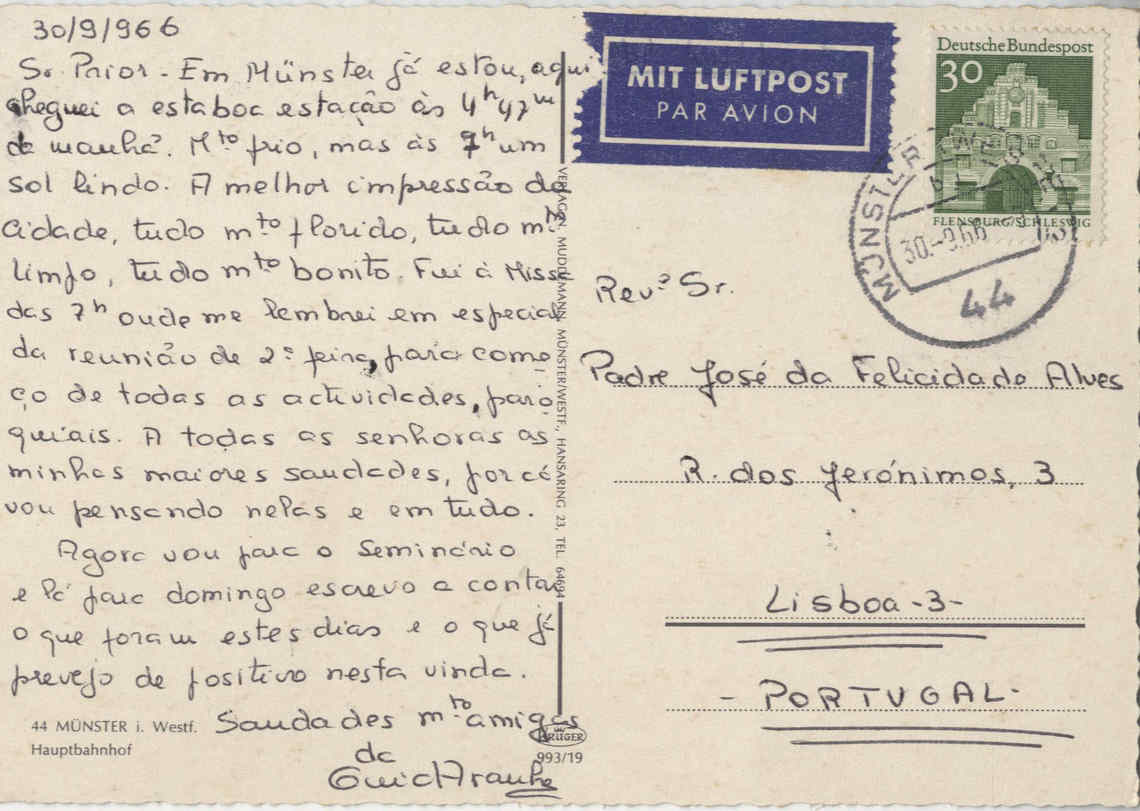 30/9/966
Sr. Prior - Em Münster já estou, aqui
cheguei a esta boa estação às 4h 47m
da manhã. Mto frio, mas às 7h um
sol lindo. A melhor impressão da
cidade, tudo mto florido, tudo mto
limpo, tudo mto bonito. Fui à Missa
das 7h onde me lembrei em especial
da reunião de 2ª feira, para come-
ço de todas as actividades, paro-
quiais. A todas as senhoras as
minhas maiores saudades, por cá
vou pensando nelas e em tudo.
Agora vou para o Seminário
e lá para domingo escrevo a contar
o que foram estes dias e o que já
prevejo de positivo nesta vinda.
Saudades mto amigas
da
44 MÜNSTER i. Westf.
Hauptbahnhof
VERLAG N. MUDELMANN, MÜNSTER/WESTF., HANSARING 23, TEL. 64694
KRÜGER
993/19
MIT LUFTPOST
PAR AVION
Deutsche Bundespost
30
FLENSBURG/SCHLESWIG
MÜNSTER
30.-9.66
44
Revº Sr.
Padre José da Felicidade Alves
R. dos Jerónimos, 3
Lisboa -3-
- PORTUGAL -